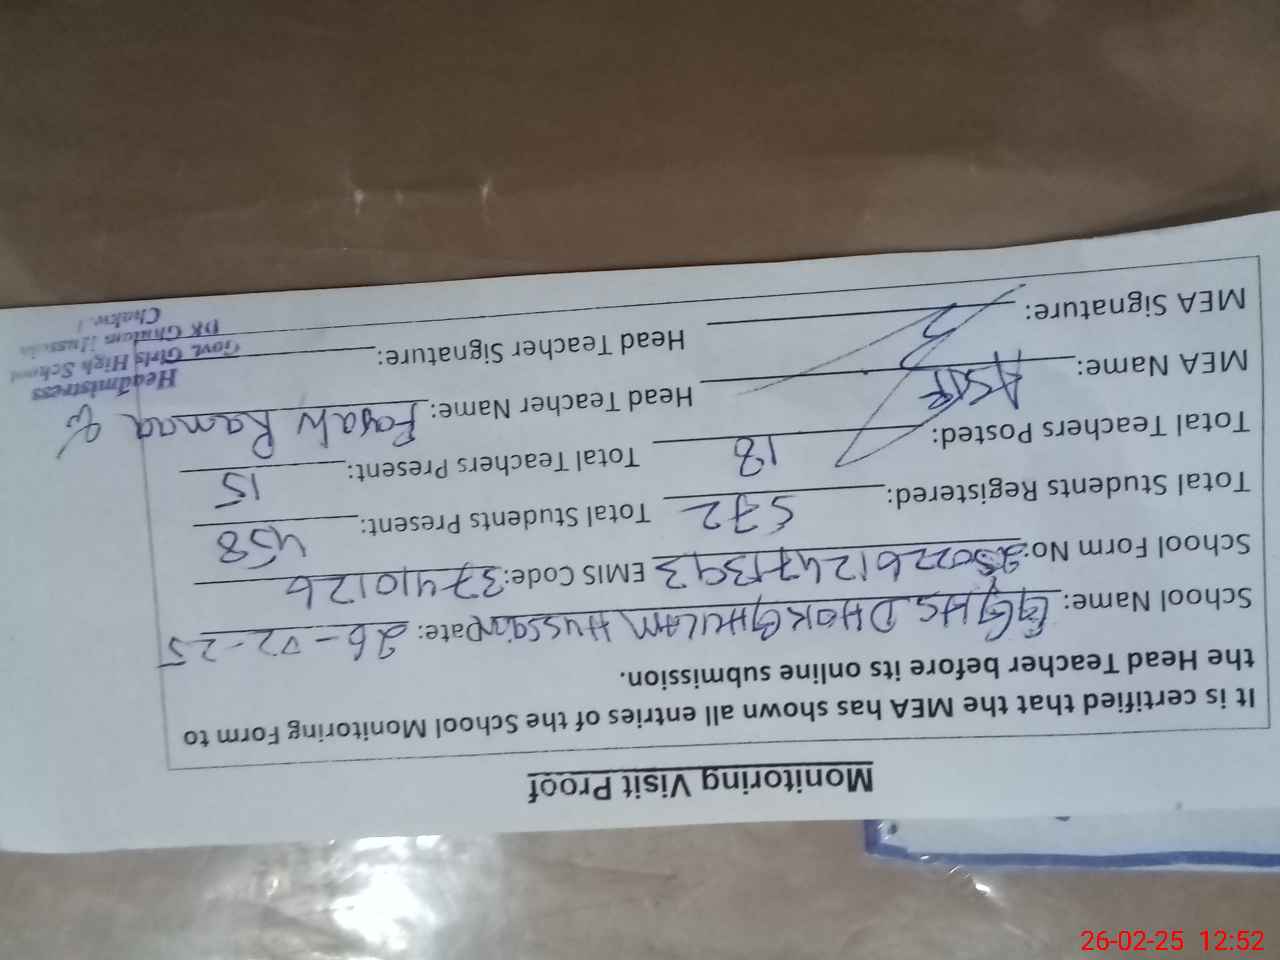 Monitoring Visit Proof
It is certified that the MEA has shown all entries of the School Monitoring Form to
the Head Teacher before its online submission.
School Name: GGHS DHOK GHULAM HUSSAIN Date: 26-02-25
School Form No: EMIS Code: 37410126
Total Students Registered: 572 Total Students Present: 458
Total Teachers Posted: 18 Total Teachers Present: 15
MEA Name: ASIF Head Teacher Name:
MEA Signature: Head Teacher Signature:
Headmistress
Govt. Girls High School
DK Ghulam Hussain
26-02-25 12:52